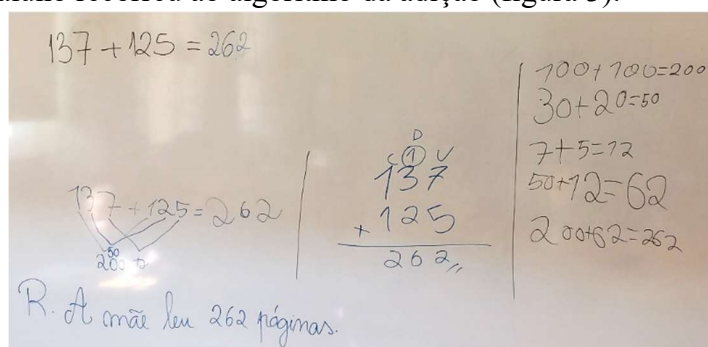 137 + 125 = 262
137 + 125 = 262
C D U
1
137
+ 125
262,,
100+100=200
30+20=50
7+5=12
50+12=62
200+62=262
R. A mãe leu 262 páginas.